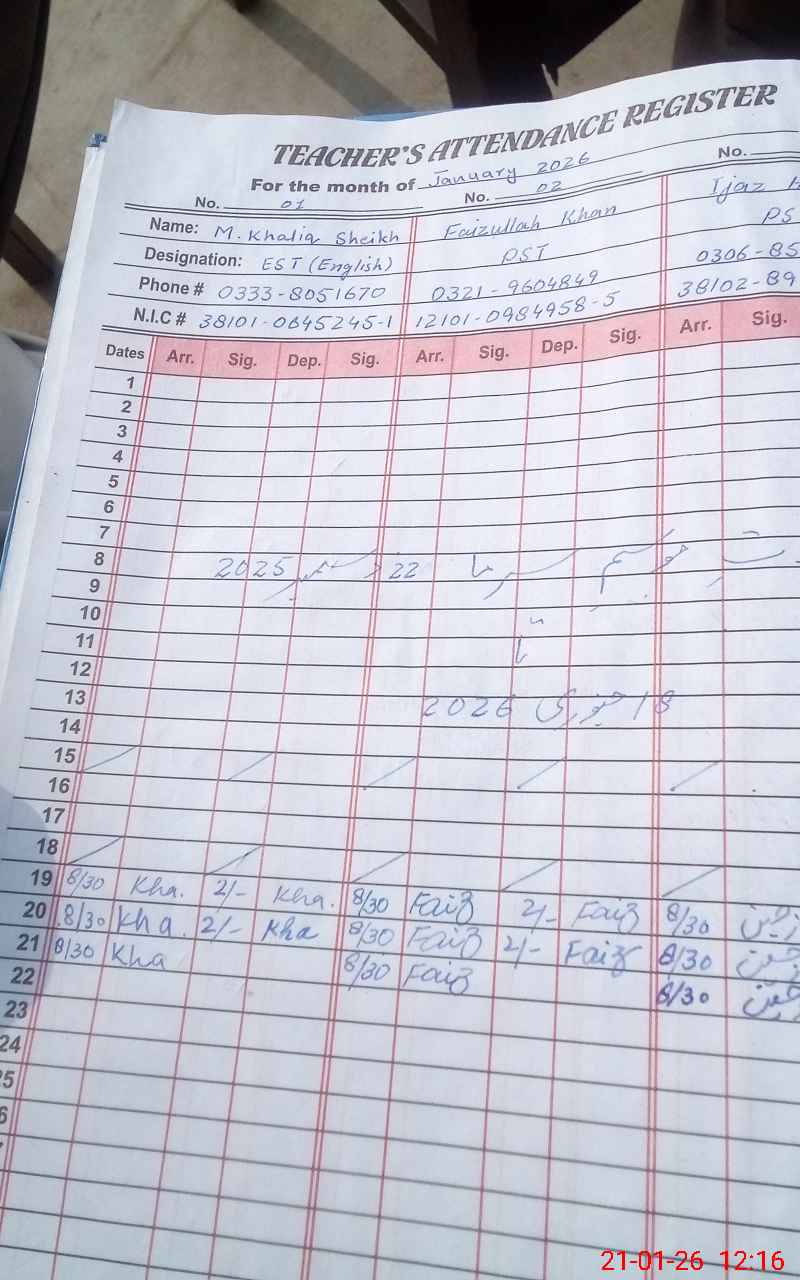 TEACHER'S ATTENDANCE REGISTER
For the month of January 2026
No. 01 No. 02 No.
Name: M. Khaliq Sheikh Faizullah Khan Ijaz
Designation: EST (English) PST PS
Phone # 0333-8051670 0321-9604849 0306-85
N.I.C # 38101-0645245-1 12101-0984958-5 38102-89
Dates Arr. Sig. Dep. Sig. Arr. Sig. Dep. Sig. Arr. Sig.
1
2
3
4
5
6
7
8 موسم سرما 22 دسمبر 2025
9
10
11 تا
12
13 18 جنوری 2026
14
15
16
17
18
19 8/30 Kha. 2/- Kha. 8/30 Faiz 2/- Faiz 8/30
20 8/30 Kha. 2/- Kha 8/30 Faiz 2/- Faiz 8/30
21 8/30 Kha 8/30 Faiz 8/30
22
23
24
5
6
21-01-26 12:16